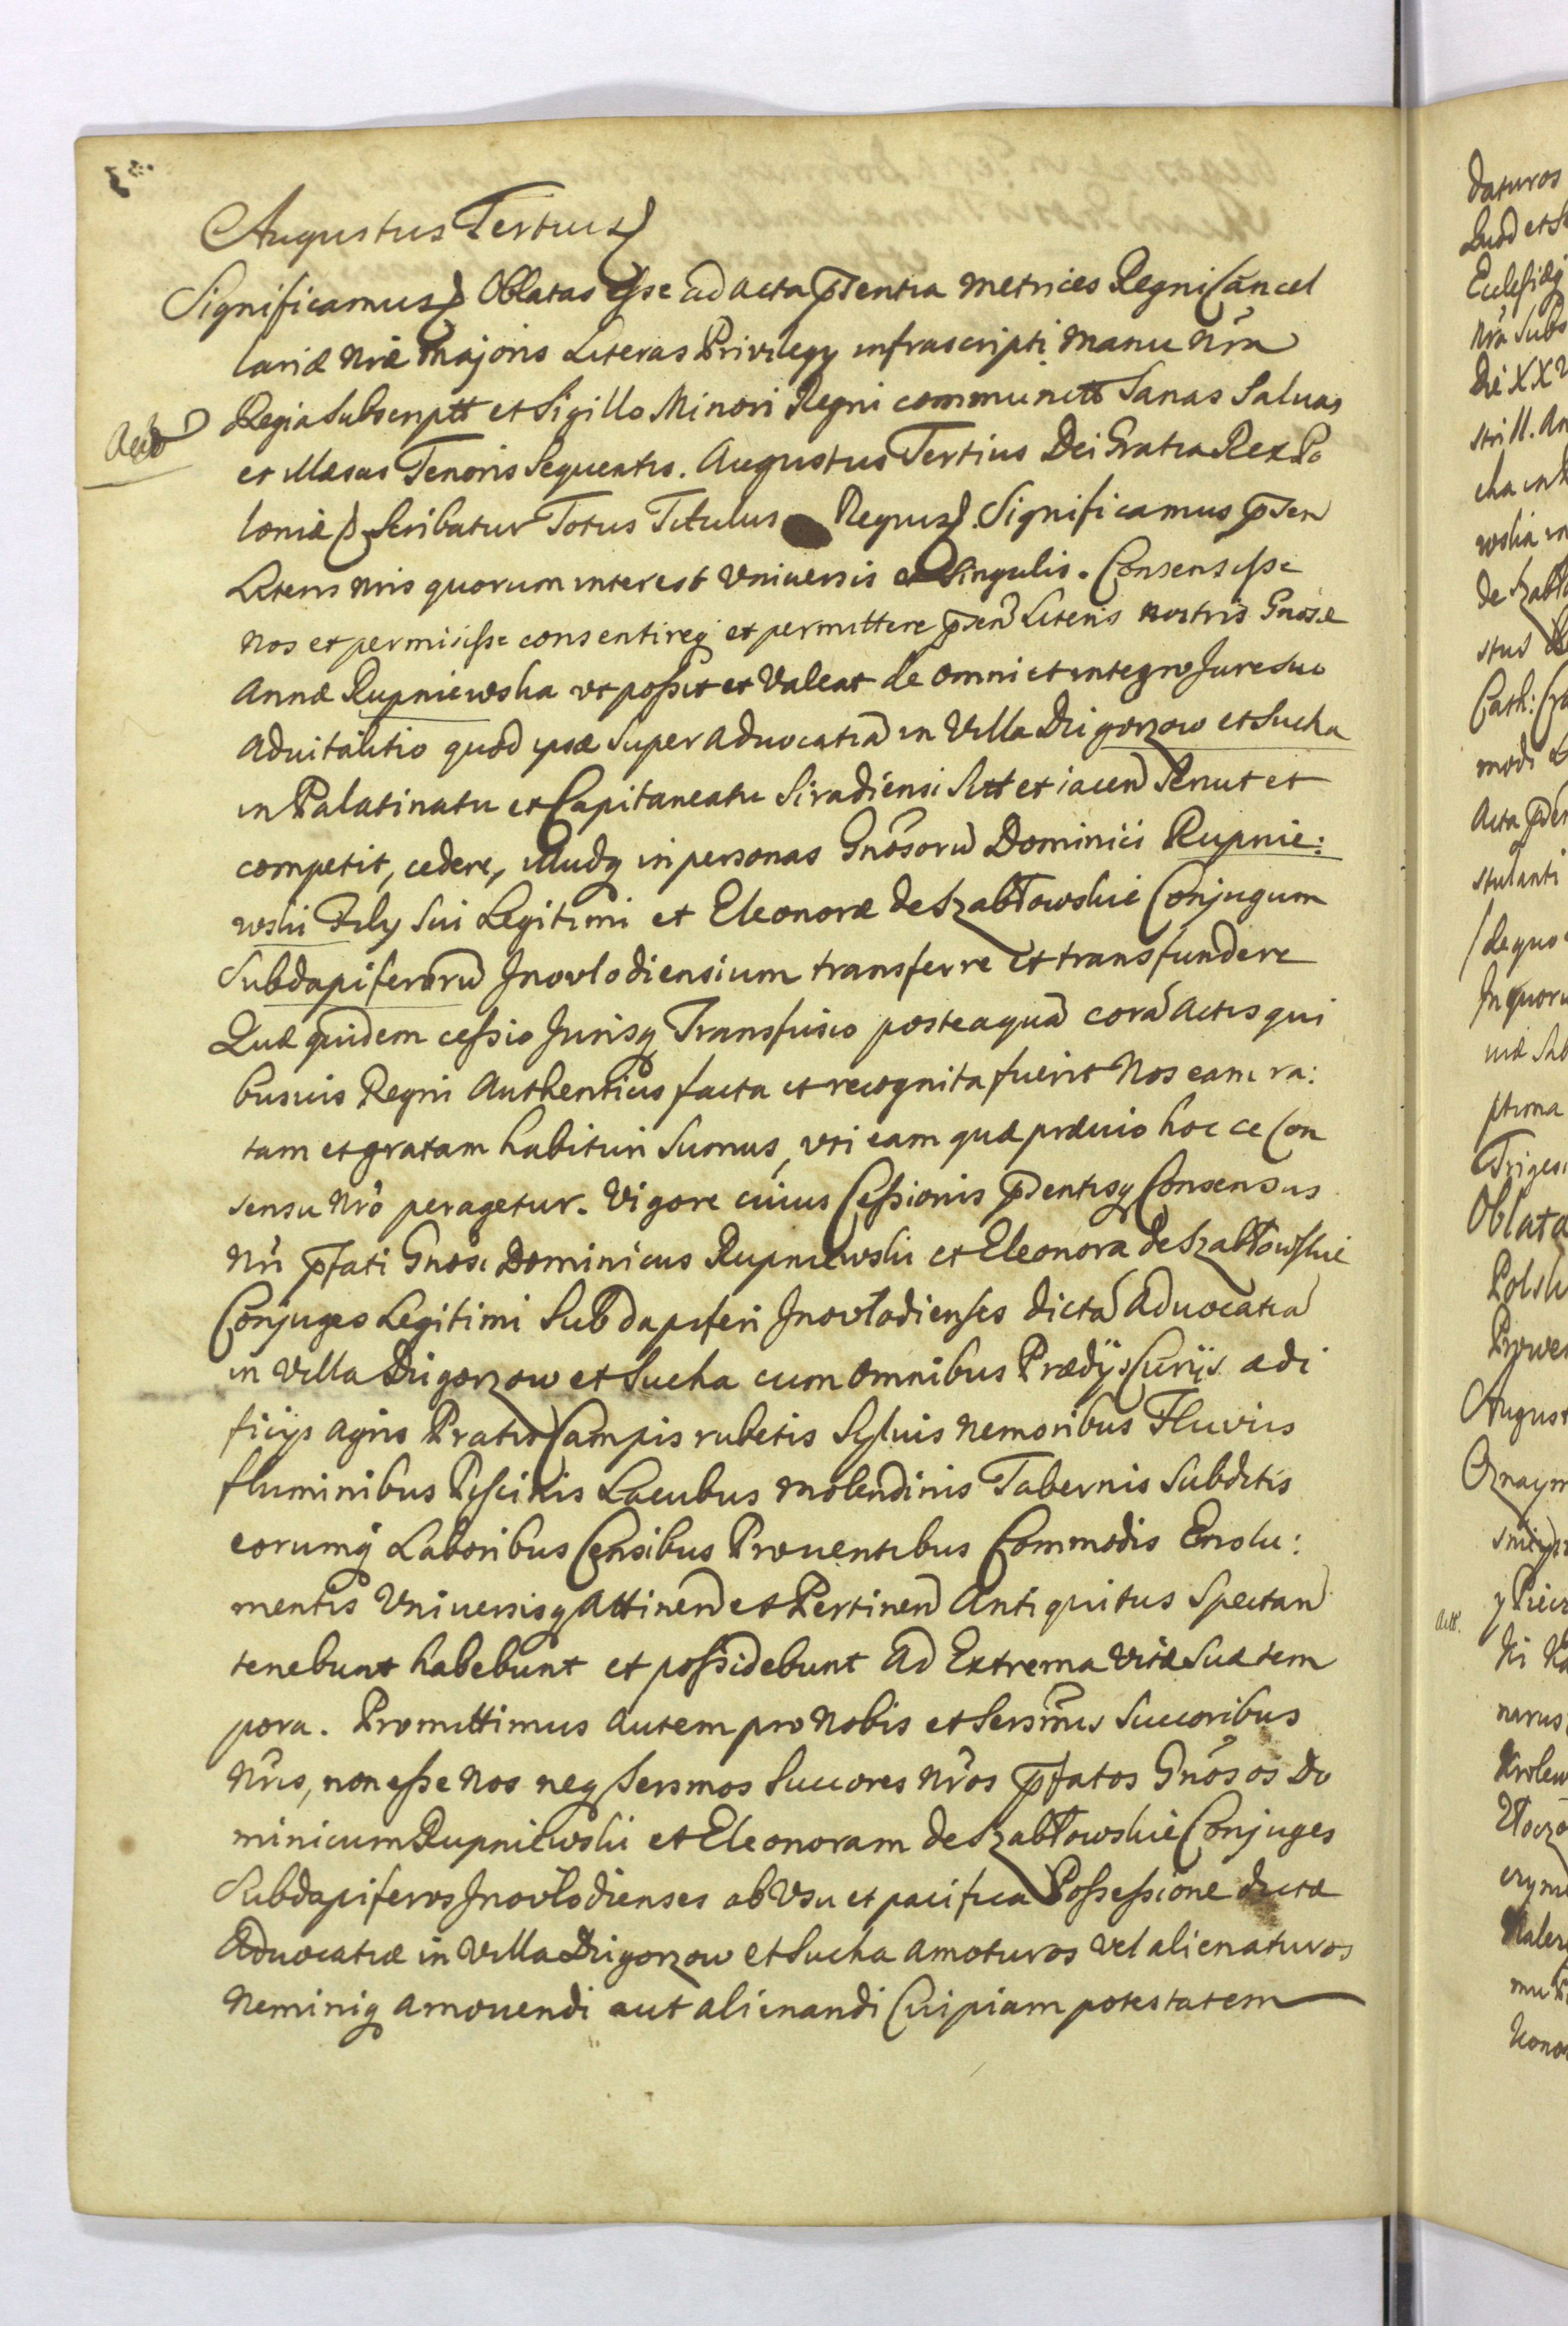 Augustus Tertius
Significamus Oblatas esse ad acta p̄sentia Metrices Regni Cancel
lariæ Nræ Majoris Literas Privilegy infrascripti Manu Nra
Regia Subscriptt et Sigillo Minori Regni communitt Sanas Salvas
et illæsas Tenoris Sequentis. Augustus Tertius Dei Gratia Rex Po
loniæ Scribatur Totus Titulus Regius. Significamus p̄sen
Literis nris quorum interest Universis et Singulis. Consensisse
nos et permisisse consentireq et permittere p̄sen Literis nostris Gnosæ
Annæ Rupniewska ut possit et Valeat de omni et integro Jure suo
Advitalitio quod ipsæ Super Advocatia in Villa Drigorzow et Sucha
in Palatinatu et Capitaneatu Siradiensi Sitt et iacen Servit et
competit, cedere, illudq in personas Gnosoru Dominici Rupnie:
wski Fily Sui Legitimi et Eleonoræ de Szabłowskie Conjugum
Subdapiferoru Jnovlodiensium transferre et transfundere
Quæ quidem cessio Jurisq Transfusio posteaqua cora Actis qui
busvis Regni Authenticis facta et recognita fuerit Nos eam ra:
tam et gratam habituri Sumus, uti eam quæ prævio hoc ce Con
sensu Nro peragetur. Vigore cuius Cessionis p̄sentisq Consensus
Nri p̄fati Gnosi Dominicus Rupniewski et Eleonora de Szabłowskie
Conjuges Legitimi Subdapiferi Jnovłodienses dicta Advocatia
in Villa Drigorzow et Sucha cum omnibus Prædijs Curijs ædi
ficijs Agris Pratis Campis rubetis Sylvis Nemoribus Fluviis
fluminibus Piscinis Lacubus Molendinis Tabernis Subditis
eorumq Laboribus Censibus Proventibus Commodis Emolu:
mentis Universisq Attinen et Pertinen Antiquitus Spectan
tenebunt habebunt et possidebunt Ad Extrema Vitæ Suæ tem
pora. Promittimus Autem pro Nobis et Sersmis Succoribus
Nris, non esse Nos neq Sersmos Succores Nros p̄fatos Gnosos Do
minicum Rupniewski et Eleonoram de Szabłowskie Conjuges
Subdapiferos Jnovłodienses ab Usu et pacifica Possessione dictæ
Advocatiæ in Villa Drigorzow et Sucha Amoturos Vel alienaturos
Neminiq Amovendi aut alienandi Cuipiam potestatem
daturos
Ecclesiæq
Nra Subs
Die XX
stri II. An
cha in
wska in
de Szabło
Cath: Cra
modi
Acta p̄sen
stulanti
de quo
Jn quoru
ptima
Triges
Oblata
Polsk
Prowe
August
Oznaym
narus
Krolew
mu